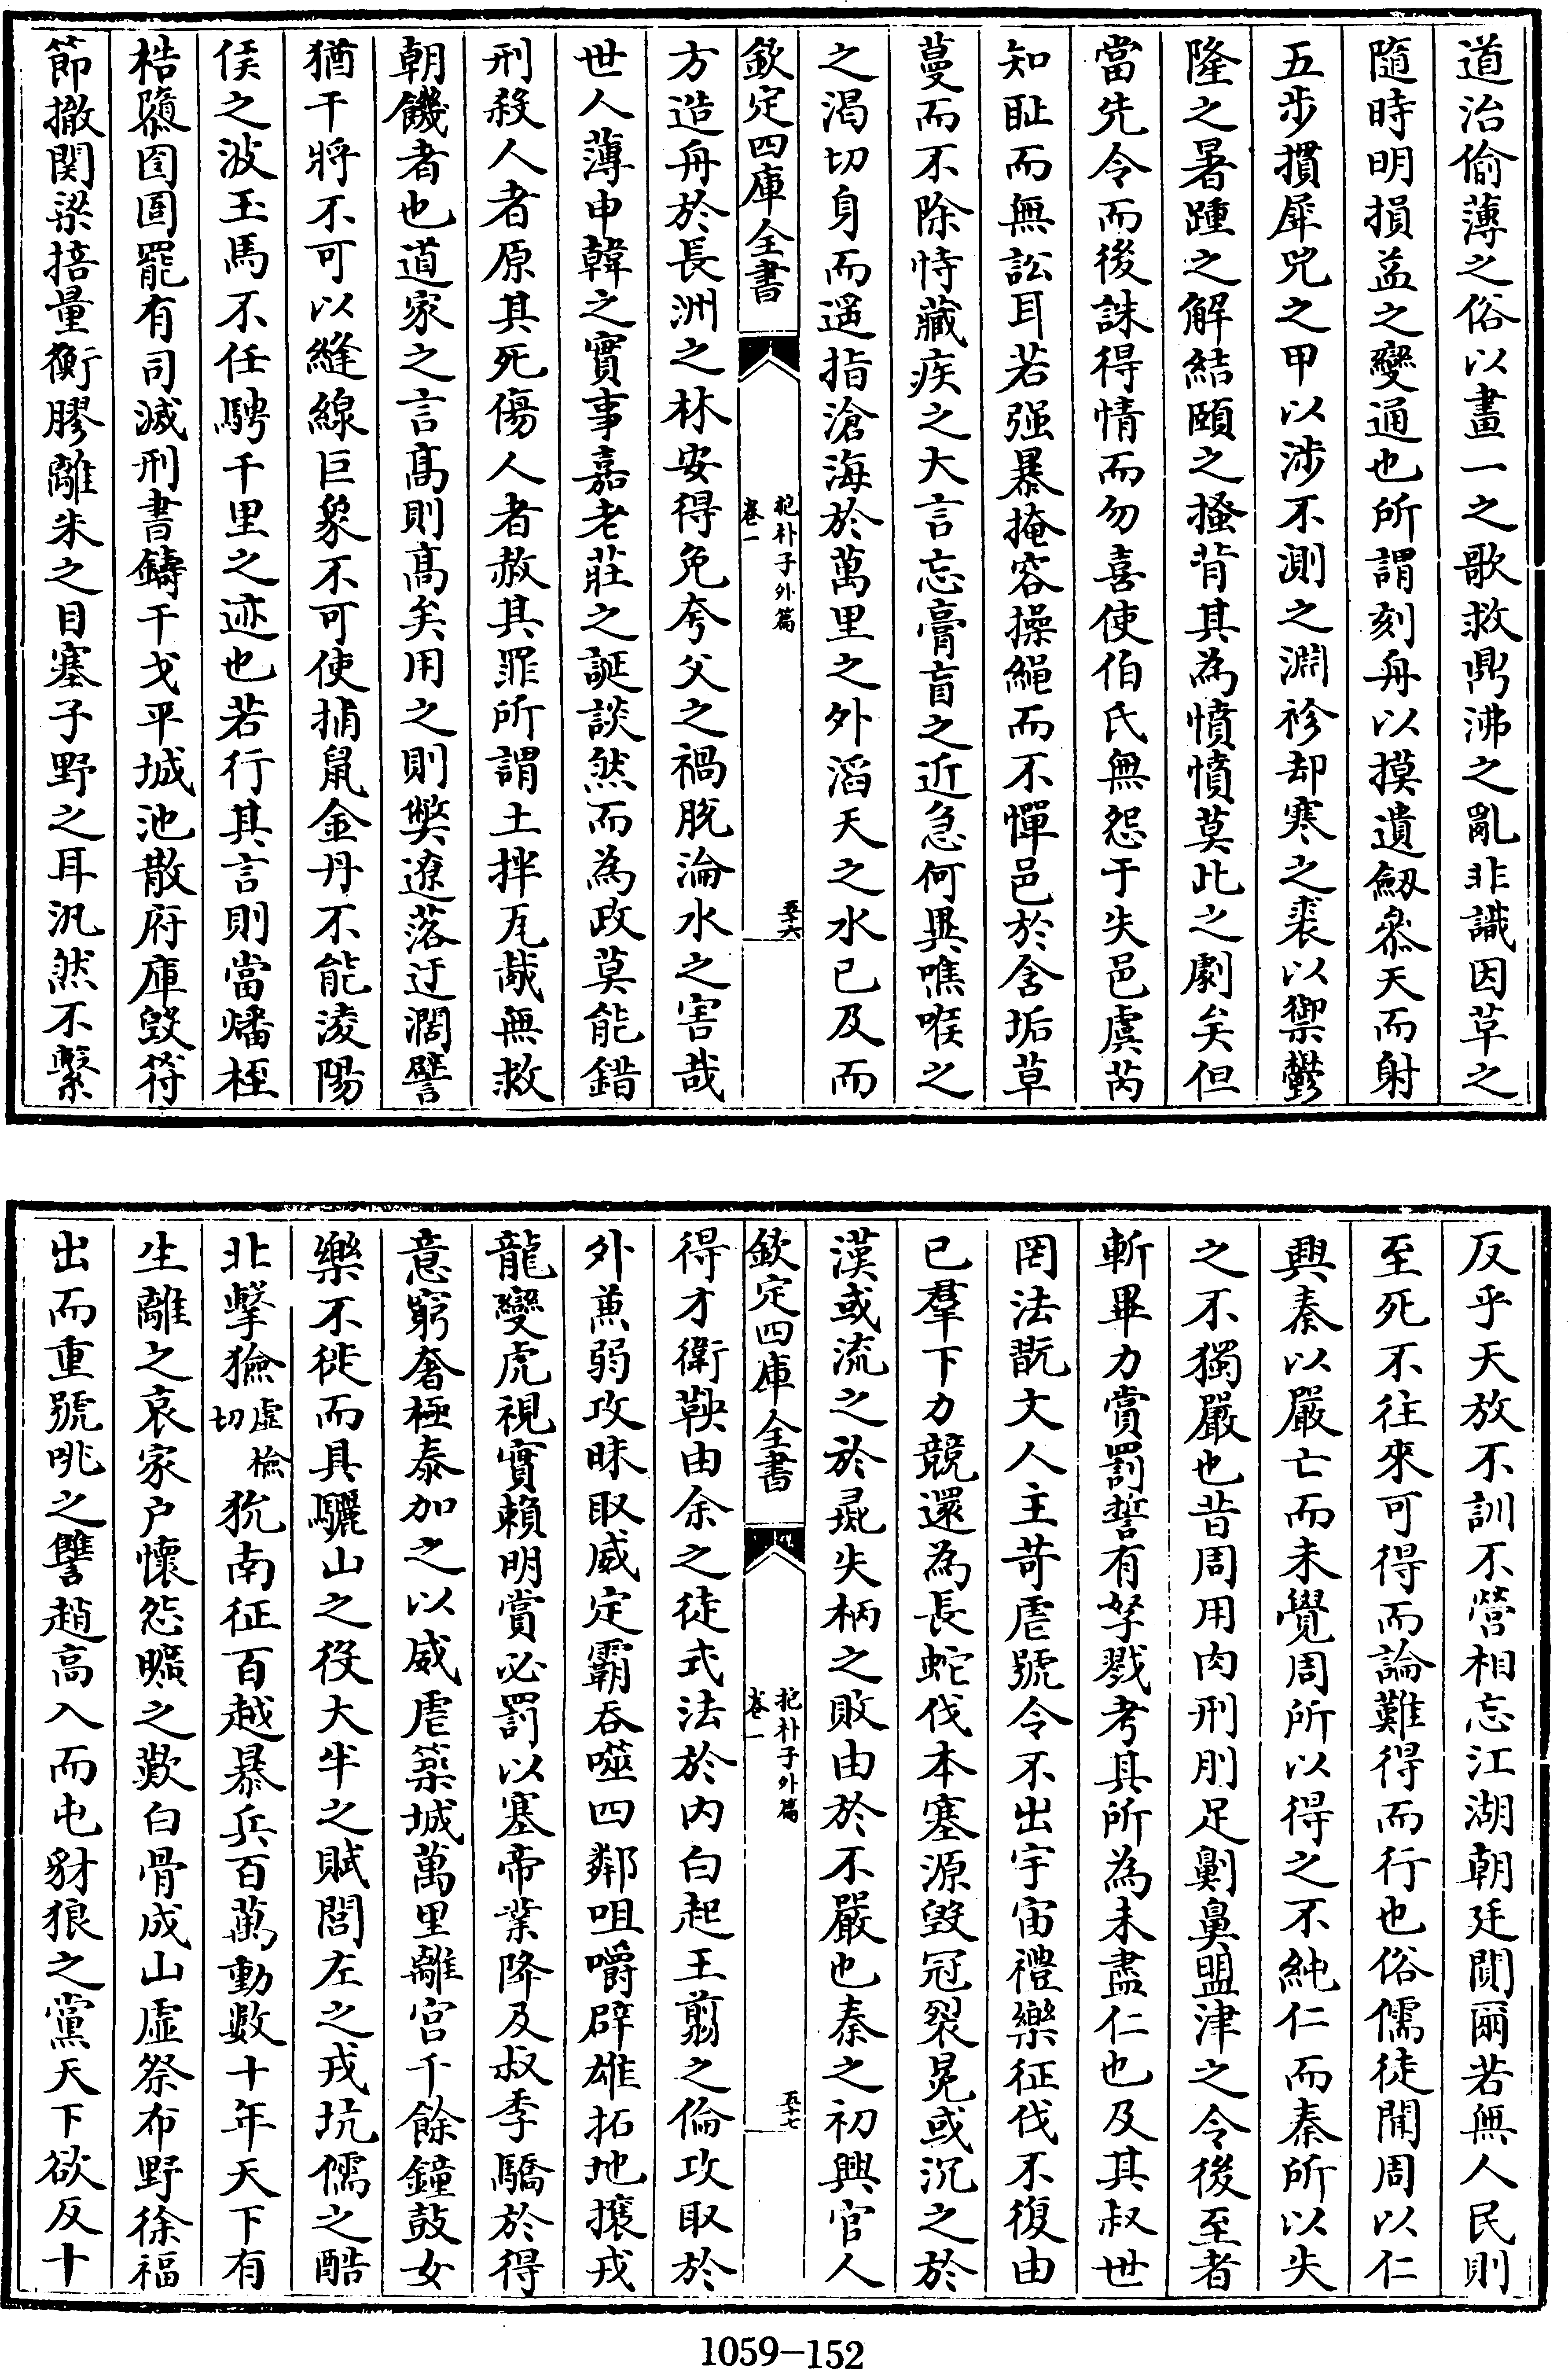 道治偷薄之俗以畫一之歌救鼎沸之亂非識因革之
隨時明損益之變通也所謂刻舟以摸遺劔叅天而射
五步摜犀兕之甲以涉不測之淵袗却寒之裘以禦鬱
隆之暑踵之解結頤之搔背其為憒憒莫此之劇矣但
當先令而後誅得情而勿喜使伯氏無怨于失邑虞芮
知耻而無訟耳若强暴掩容操繩而不憚邑於含垢草
蔓而不除恃藏疾之大言忘膏肓之近急何異噍喉之
之渴切身而遥指滄海於萬里之外滔天之水已及而
欽定四庫全書
抱朴子外篇
卷一
五十六
方造舟於長洲之林安得免夸父之禍脱淪水之害哉
世人薄申韓之實事嘉老莊之誕談然而為政莫能錯
刑殺人者原其死傷人者赦其罪所謂土拌瓦胾無救
朝饑者也道家之言髙則髙矣用之則弊遼落迂濶譬
猶干將不可以縫線巨象不可使捕鼠金丹不能淩陽
侯之波玉馬不任騁千里之迹也若行其言則當燔桎
梏隳囹圄罷有司滅刑書鑄干戈平城池散府庫毁符
節撤関梁掊量衡膠離朱之目塞子野之耳汎然不繫
反乎天放不訓不營相忘江湖朝廷闃爾若無人民則
至死不往來可得而論難得而行也俗儒徒聞周以仁
興秦以嚴亡而未覺周所以得之不純仁而秦所以失
之不獨嚴也昔周用肉刑刖足劓鼻盟津之令後至者
斬畢力賞罰誓有孥戮考其所為未盡仁也及其叔世
罔法翫文人主苛虐號令不出宇宙禮樂征伐不復由
已羣下力競還為長蛇伐本塞源毁冠裂冕或沉之於
漢或流之於彘失柄之敗由於不嚴也秦之初興官人
欽定四庫全書
抱朴子外篇
卷一
五十七
得才衛鞅由余之徒式法於内白起王翦之倫攻取於
外兼弱攻昧取威定霸吞噬四鄰咀嚼群雄拓地攘戎
龍變虎視實賴明賞必罰以塞帝業降及叔季驕於得
意窮奢極泰加之以威虐築城萬里離宮千餘鐘鼓女
樂不徙而具驪山之役大半之賦閭左之戎坑儒之酷
北擊獫虛檢切狁南征百越暴兵百萬動數十年天下有
生離之哀家户懷怨曠之歎白骨成山虛祭布野徐福
出而重號咷之讐趙高入而屯豺狼之黨天下欲反十
1059-152